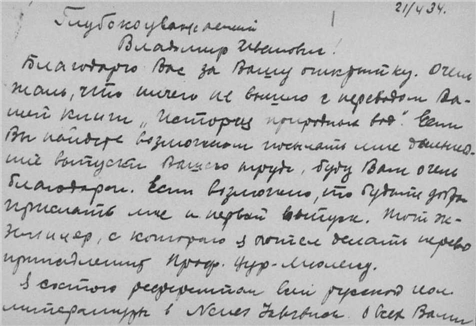 21/V 34.
Глубокоуважаемый
Владимир Иванович!
Благодарю Вас за Вашу открытку. Очень
жаль, что ничего не вышло с переводом Ва-
шей книги „История природных вод". Если
Вы найдете возможным посылать мне дальней-
ший выпуски Вашего труда, буду Вам очень
благодарен. Если возможно, что будьте добры
прислать мне и первый выпуск. Тот э-
кземпляр, с которого я хотел делать перевод
принадлежит Проф.
Я состою референтом всей русской
литературы в Neues Jahrbuch. О всех Ваших